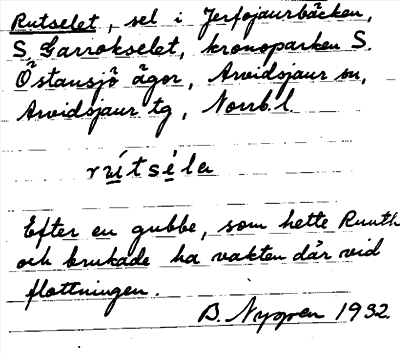 Rutselet, sel i Jerfojaurbäcken,
S Garrokselet, kronoparken S.
Östansjö ägor, Arvidsjaur sn,
Arvidsjaur tg, Norrb.l.
rútsèla
Efter en gubbe, som hette Ruuth
och brukade ha vakten där vid
flottningen.
B. Nygren 1932.